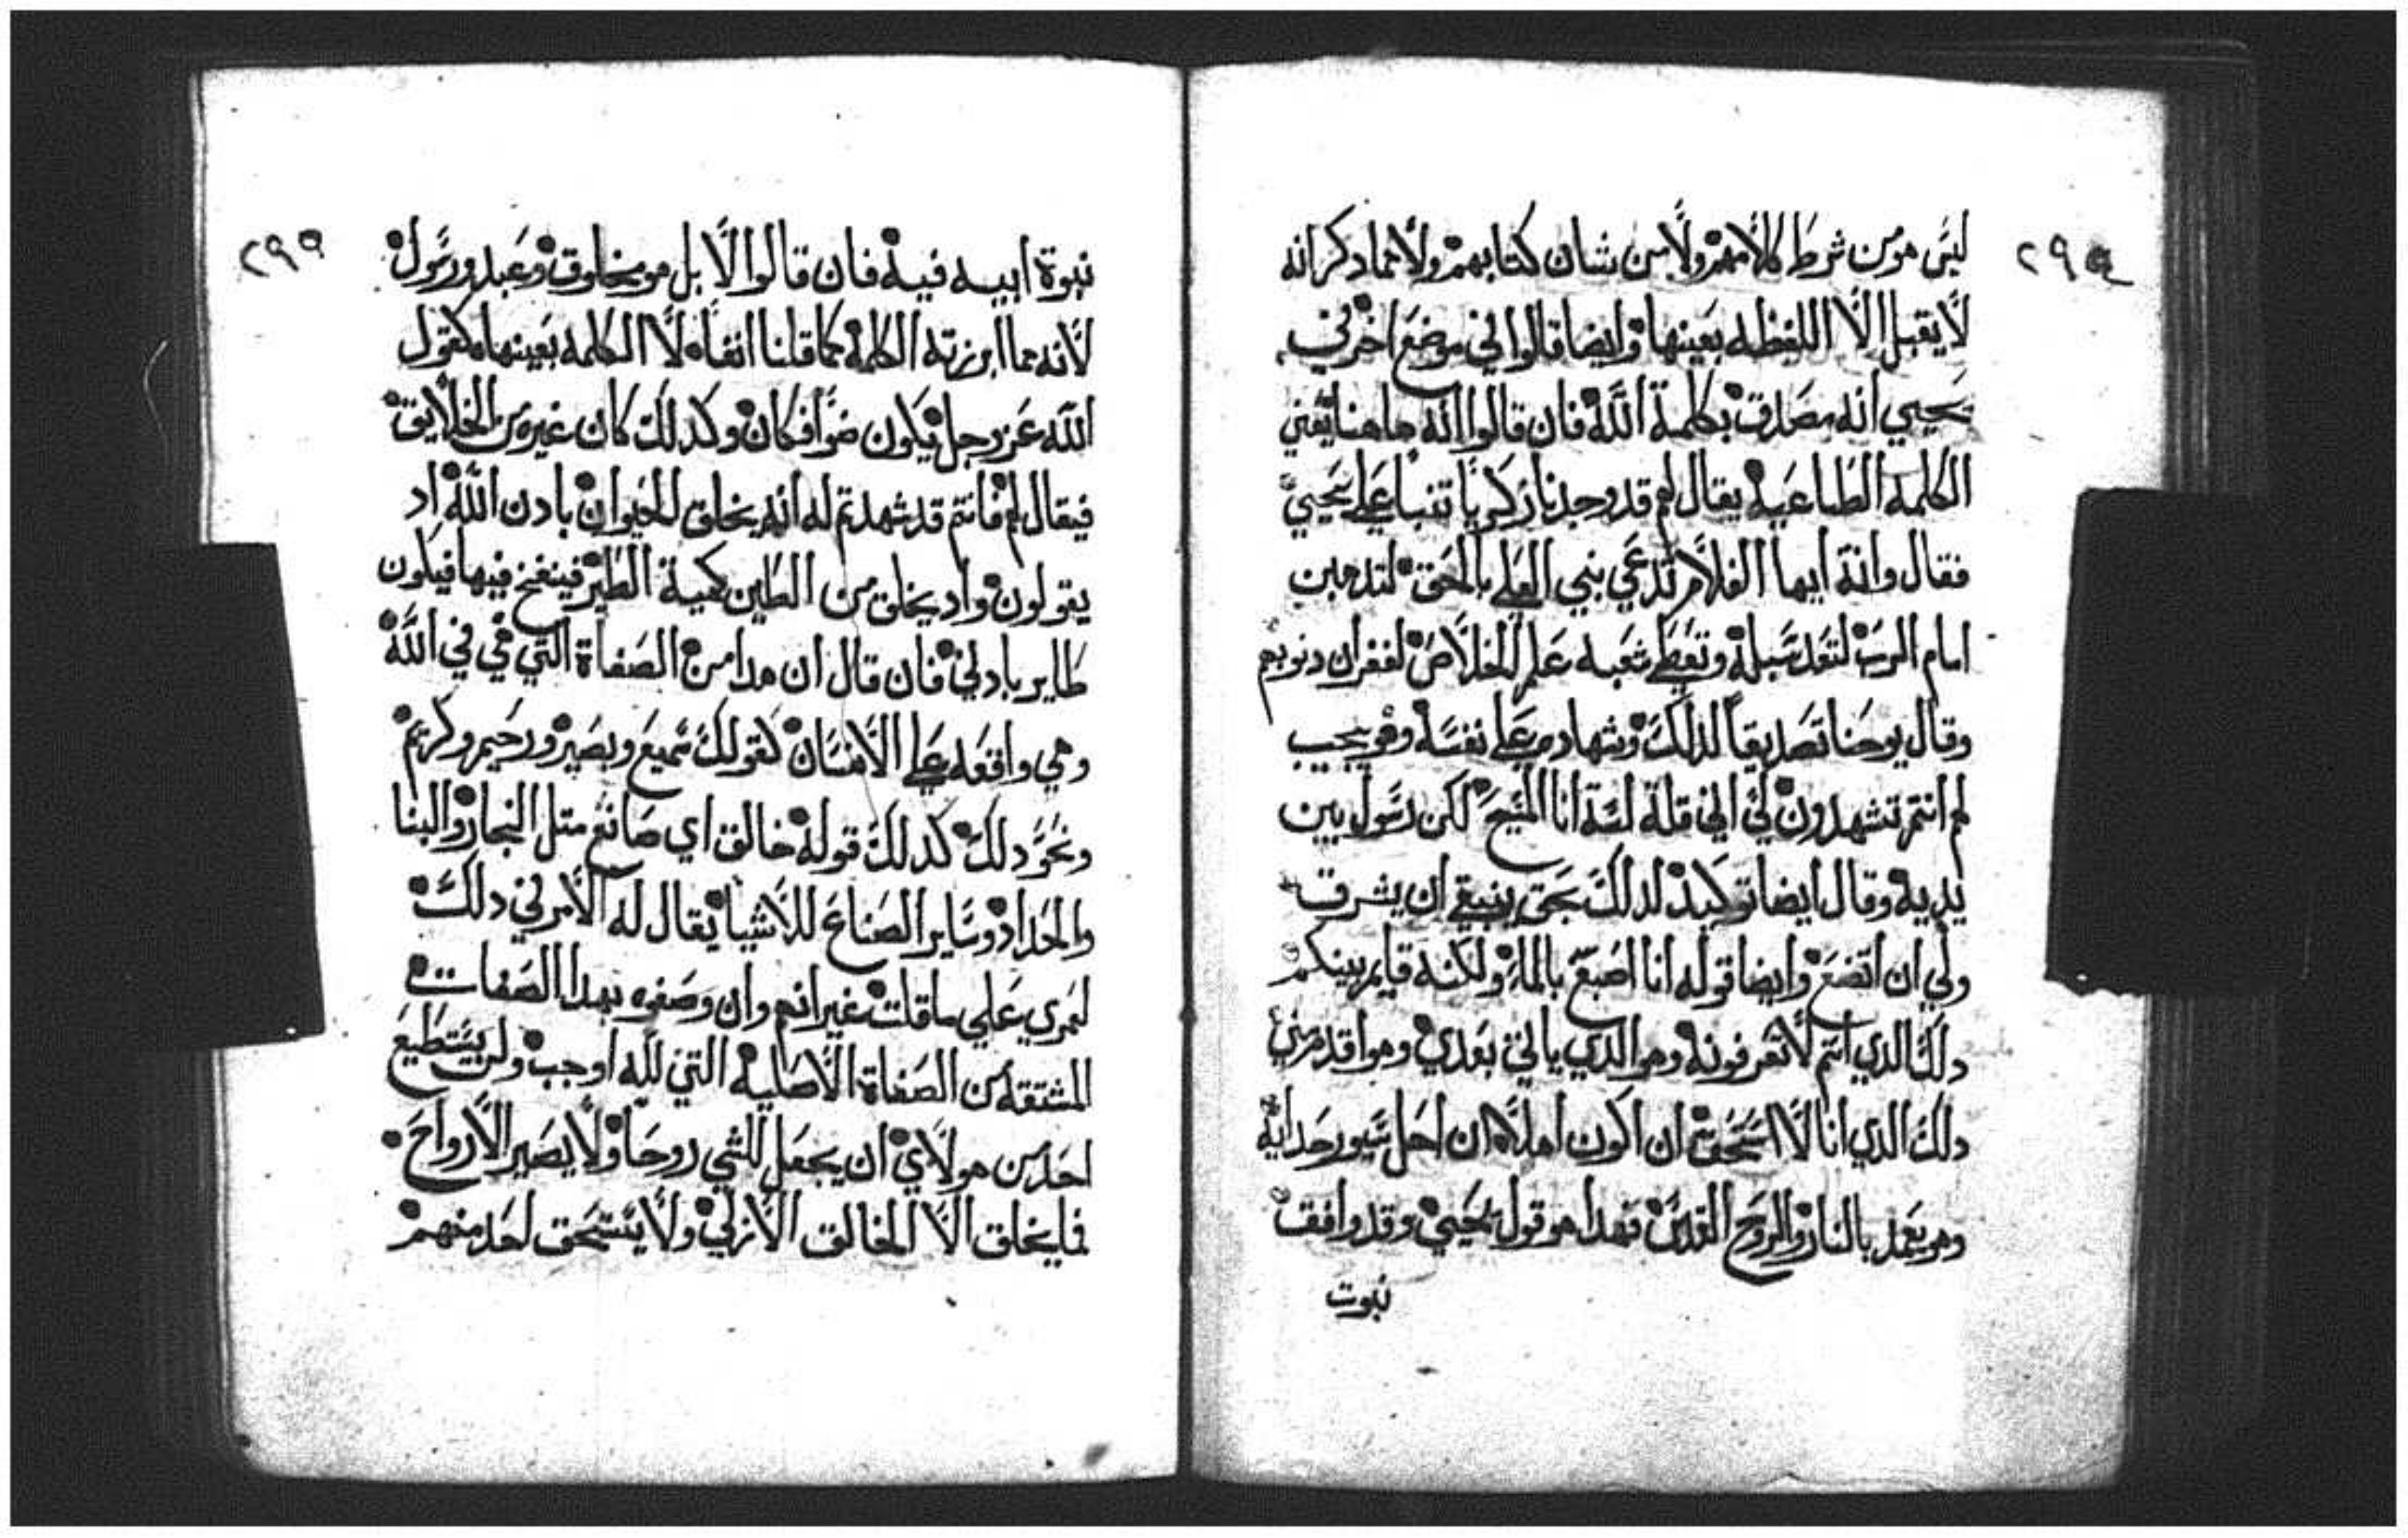 ٢٩٨
ليس هو من شرط كلامهم ولا من شان كتابهم ولا مما دكر انه
لا يقبل الا اللفظه بعينها وايضا قالوا في موضع اخر في
يحيي انه مصدق بكلمة الله فان قالوا انه هاهنا يعني
الكلمه الطباعيه يقال لهم قد وجدنا زكريا تنبا علي يحيي
فقال وانة ايها الغلام تدعي نبي العلي بالحق لتدهبن
امام الرب لتعد سبله وتعطي شعبه علم الخلاص لغفران دنوبهم
وقال يوحنا تصديقاً لذلك وشهاده علي نفسه وهو يجيب
لهم انتم تشهدون لي اني قلة لسة انا المسيح لكن رسول بين
يديه وقال ايضا توكيد لدلك بحق ينبغي ان يشرق
ولي ان اتضع وايضا قوله انا اصبغ بالماء ولكنه قايم بينكم
دلك الدي انتم لا تعرفونه وهو الدي ياتي بعدي وهو اقدم مني
دلك الدي انا لا استحق ان اكون اهلا ان احل سيور حدايه
وهو يعمد بالنار والروح القدس فهدا هو قول يحيي وقد وافقت
نبوت
٢٩٩
نبوة ابيه فيه فان قالوا لا بل هو مخلوق وعبد ورسول
لانه مما ابرزته الكلمه كما قلنا انفاه لا الكلمه بعينها كقول
الله عز وجل يكون ضوا فكان وكدلك كان غيره من الخلايق
فيقال لهم فانتم قد شهدتم له انه يخلق الحيوان بادن الله اد
يقولون واد يخلق من الطين كهية الطير فينفخ فيها فيكون
طاير بادني فان قال ان هدا من الصفاة التي هي في الله
وهي واقعه علي الانسان كقولك سميع وبصير ورحيم وكريم
ونحو دلك كدلك قوله خالق اي صانع متل النجار والبنا
والحداد وساير الصناع للاشيا يقال له الامر في دلك
لعمري علي ما قلت غير انهم وان وصفوه بهدا الصفات
المشتقه من الصفاة الاصليه التي لله اوجب ولن يستطيع
احد من هولاي ان يجعل للشي روحا ولا يصير الارواح
فما يخلق الا الخالق الازلي ولا يستحق احد منهم